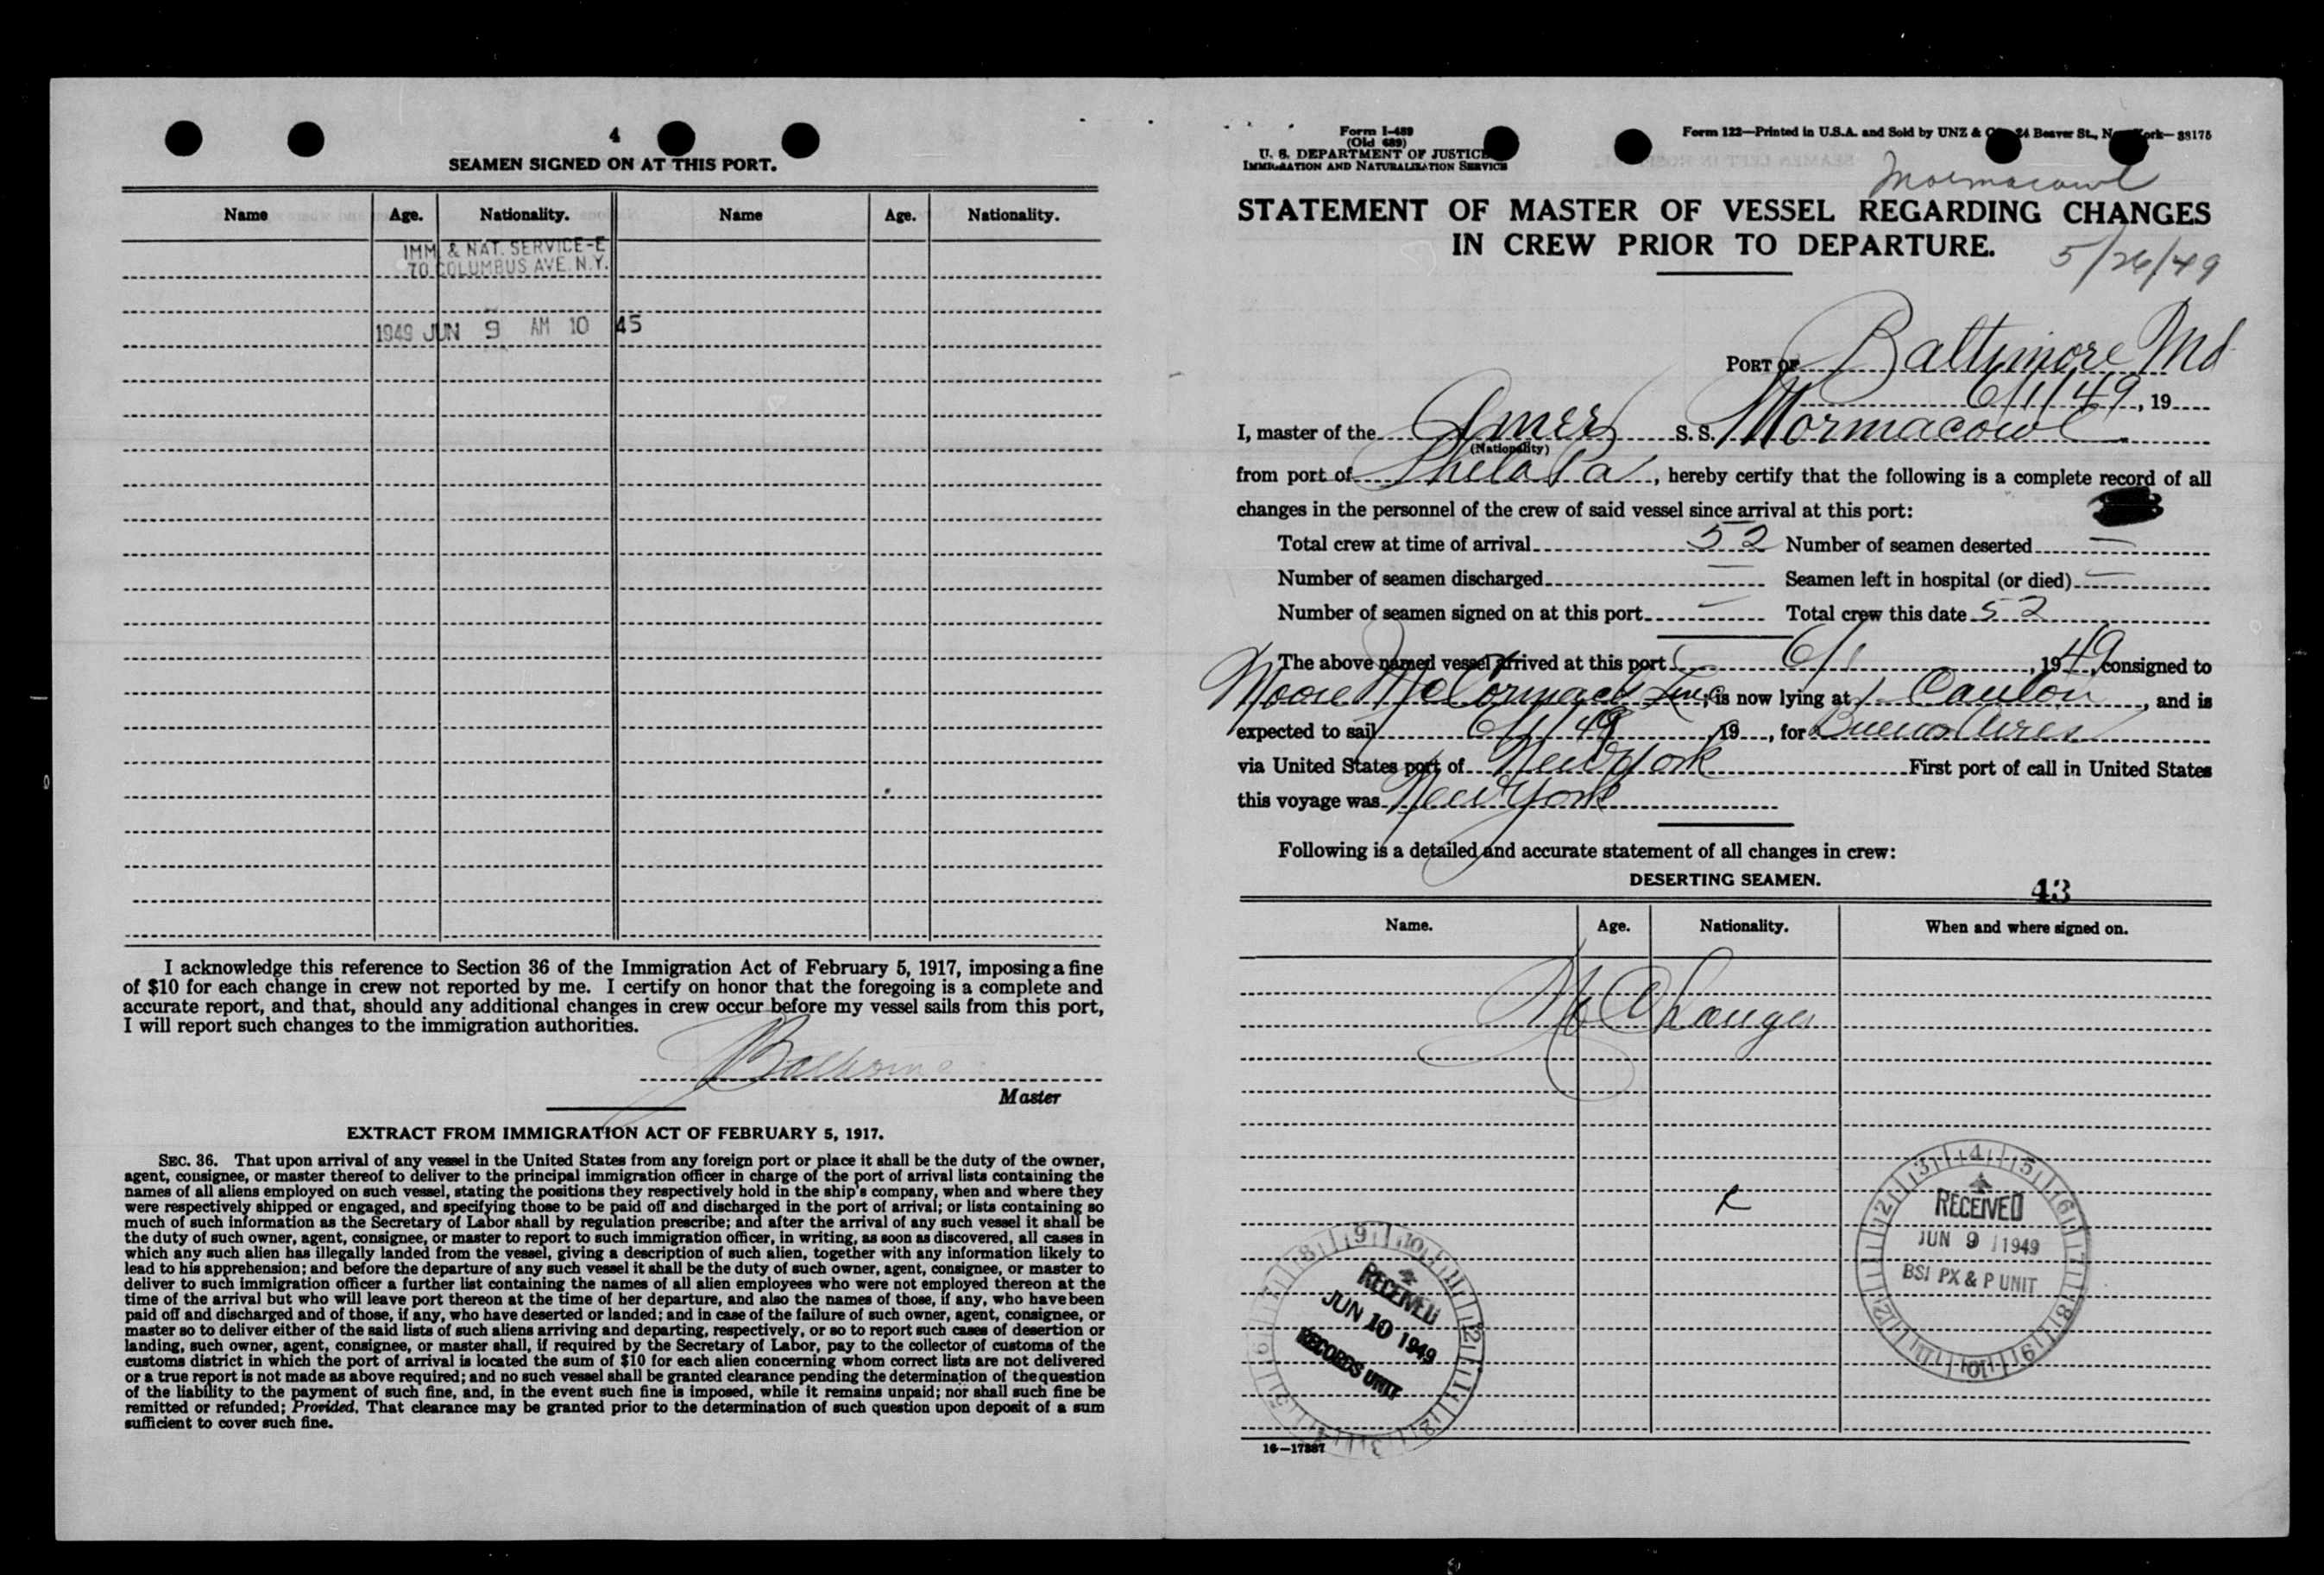 4
SEAMEN SIGNED ON AT THIS PORT.
Name Age. Nationality. Name Age. Nationality.
IMM. & NAT. SERVICE-E
70 COLUMBUS AVE. N.Y.
1949 JUN 9 AM 10 45
I acknowledge this reference to Section 36 of the Immigration Act of February 5, 1917, imposing a fine
of $10 for each change in crew not reported by me. I certify on honor that the foregoing is a complete and
accurate report, and that, should any additional changes in crew occur before my vessel sails from this port,
I will report such changes to the immigration authorities.
Master
EXTRACT FROM IMMIGRATION ACT OF FEBRUARY 5, 1917.
SEC. 36. That upon arrival of any vessel in the United States from any foreign port or place it shall be the duty of the owner,
agent, consignee, or master thereof to deliver to the principal immigration officer in charge of the port of arrival lists containing the
names of all aliens employed on such vessel, stating the positions they respectively hold in the ship's company, when and where they
were respectively shipped or engaged, and specifying those to be paid off and discharged in the port of arrival; or lists containing so
much of such information as the Secretary of Labor shall by regulation prescribe; and after the arrival of any such vessel it shall be
the duty of such owner, agent, consignee, or master to report to such immigration officer, in writing, as soon as discovered, all cases in
which any such alien has illegally landed from the vessel, giving a description of such alien, together with any information likely to
lead to his apprehension; and before the departure of any such vessel it shall be the duty of such owner, agent, consignee, or master to
deliver to such immigration officer a further list containing the names of all alien employees who were not employed thereon at the
time of the arrival but who will leave port thereon at the time of her departure, and also the names of those, if any, who have been
paid off and discharged and of those, if any, who have deserted or landed; and in case of the failure of such owner, agent, consignee, or
master so to deliver either of the said lists of such aliens arriving and departing, respectively, or so to report such cases of desertion or
landing, such owner, agent, consignee, or master shall, if required by the Secretary of Labor, pay to the collector of customs of the
customs district in which the port of arrival is located the sum of $10 for each alien concerning whom correct lists are not delivered
or a true report is not made as above required; and no such vessel shall be granted clearance pending the determination of the question
of the liability to the payment of such fine, and, in the event such fine is imposed, while it remains unpaid; nor shall such fine be
remitted or refunded; Provided, That clearance may be granted prior to the determination of such question upon deposit of a sum
sufficient to cover such fine.
Form I-489
(Old 689)
U. S. DEPARTMENT OF JUSTICE
IMMIGRATION AND NATURALIZATION SERVICE
Form 122—Printed in U.S.A. and Sold by UNZ & Beaver St., 38175
Mormacowl
STATEMENT OF MASTER OF VESSEL REGARDING CHANGES
IN CREW PRIOR TO DEPARTURE.
5/26/49
PORT OF Baltimore Md
6/1/49, 19
I, master of the Amer S. S. Mormacowl
(Nationality)
from port of Phila Pa, hereby certify that the following is a complete record of all
changes in the personnel of the crew of said vessel since arrival at this port:
Total crew at time of arrival 52 Number of seamen deserted —
Number of seamen discharged — Seamen left in hospital (or died) —
Number of seamen signed on at this port — Total crew this date 52
The above named vessel arrived at this port 6/1, 1949, consigned to
Moore McCormack Line; is now lying at Canton, and is
expected to sail 6/1/49, 19, for Buenos Aires
via United States port of New York First port of call in United States
this voyage was New York
Following is a detailed and accurate statement of all changes in crew:
DESERTING SEAMEN.
43
Name. Age. Nationality. When and where signed on.
No Changes
RECEIVED
JUN 9 1949
BSI PX & P UNIT
RECEIVED
JUN 10 1949
RECORDS UNIT
16—17887